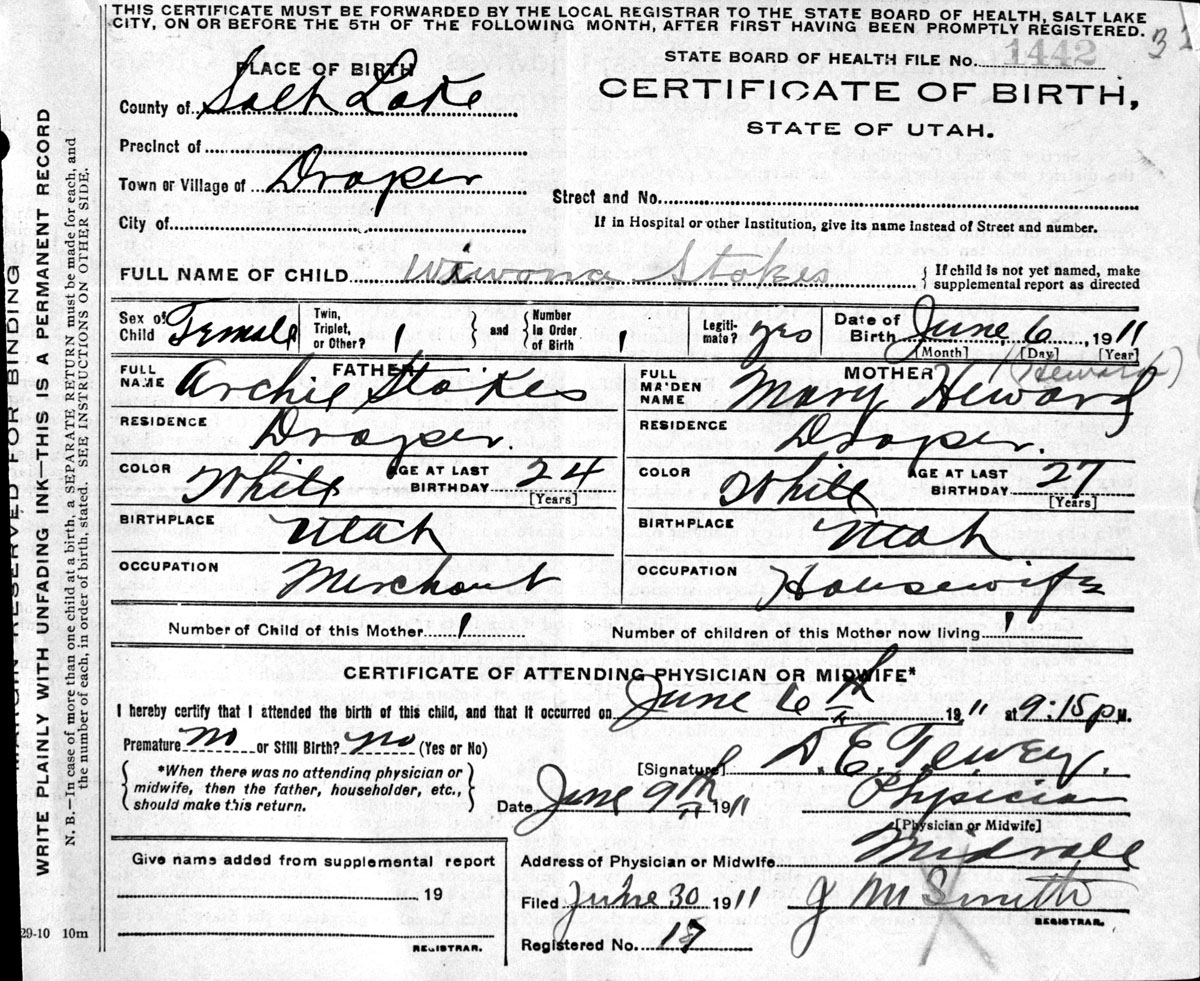 THIS CERTIFICATE MUST BE FORWARDED BY THE LOCAL REGISTRAR TO THE STATE BOARD OF HEALTH, SALT LAKE
CITY, ON OR BEFORE THE 5TH OF THE FOLLOWING MONTH, AFTER FIRST HAVING BEEN PROMPTLY REGISTERED.
STATE BOARD OF HEALTH FILE No. 1442
PLACE OF BIRTH
CERTIFICATE OF BIRTH,
STATE OF UTAH.
County of Salt Lake
Precinct of
Town or Village of Draper
Street and No.
City of
If in Hospital or other Institution, give its name instead of Street and number.
FULL NAME OF CHILD Wiwona Stokes { If child is not yet named, make supplemental report as directed
Sex of Child Female Twin, Triplet, or Other? 1 and Number in Order of Birth 1 Legitimate? yes Date of Birth June 6, 1911
[Month] [Day] [Year]
FATHER MOTHER (Heward)
FULL NAME Archie Stokes FULL MAIDEN NAME Mary Heward
RESIDENCE Draper. RESIDENCE Draper.
COLOR White AGE AT LAST BIRTHDAY 24 [Years] COLOR White AGE AT LAST BIRTHDAY 27 [Years]
BIRTHPLACE Utah BIRTHPLACE Utah
OCCUPATION Merchant OCCUPATION Housewife
Number of Child of this Mother 1 Number of children of this Mother now living 1
CERTIFICATE OF ATTENDING PHYSICIAN OR MIDWIFE*
I hereby certify that I attended the birth of this child, and that it occurred on June 6th 1911 at 9:15 P M.
Premature? no or Still Birth? no (Yes or No)
*When there was no attending physician or
midwife, then the father, householder, etc.,
should make this return.
[Signature]
Date June 9th 1911 Physician
[Physician or Midwife]
Give name added from supplemental report
19
REGISTRAR.
Address of Physician or Midwife Midvale
Filed June 30 1911 J M Smith
REGISTRAR.
Registered No.
29-10 10m
MARGIN RESERVED FOR BINDING
WRITE PLAINLY WITH UNFADING INK—THIS IS A PERMANENT RECORD
N. B.—In case of more than one child at a birth, a SEPARATE RETURN must be made for each, and
the number of each, in order of birth, stated. SEE INSTRUCTIONS ON OTHER SIDE.